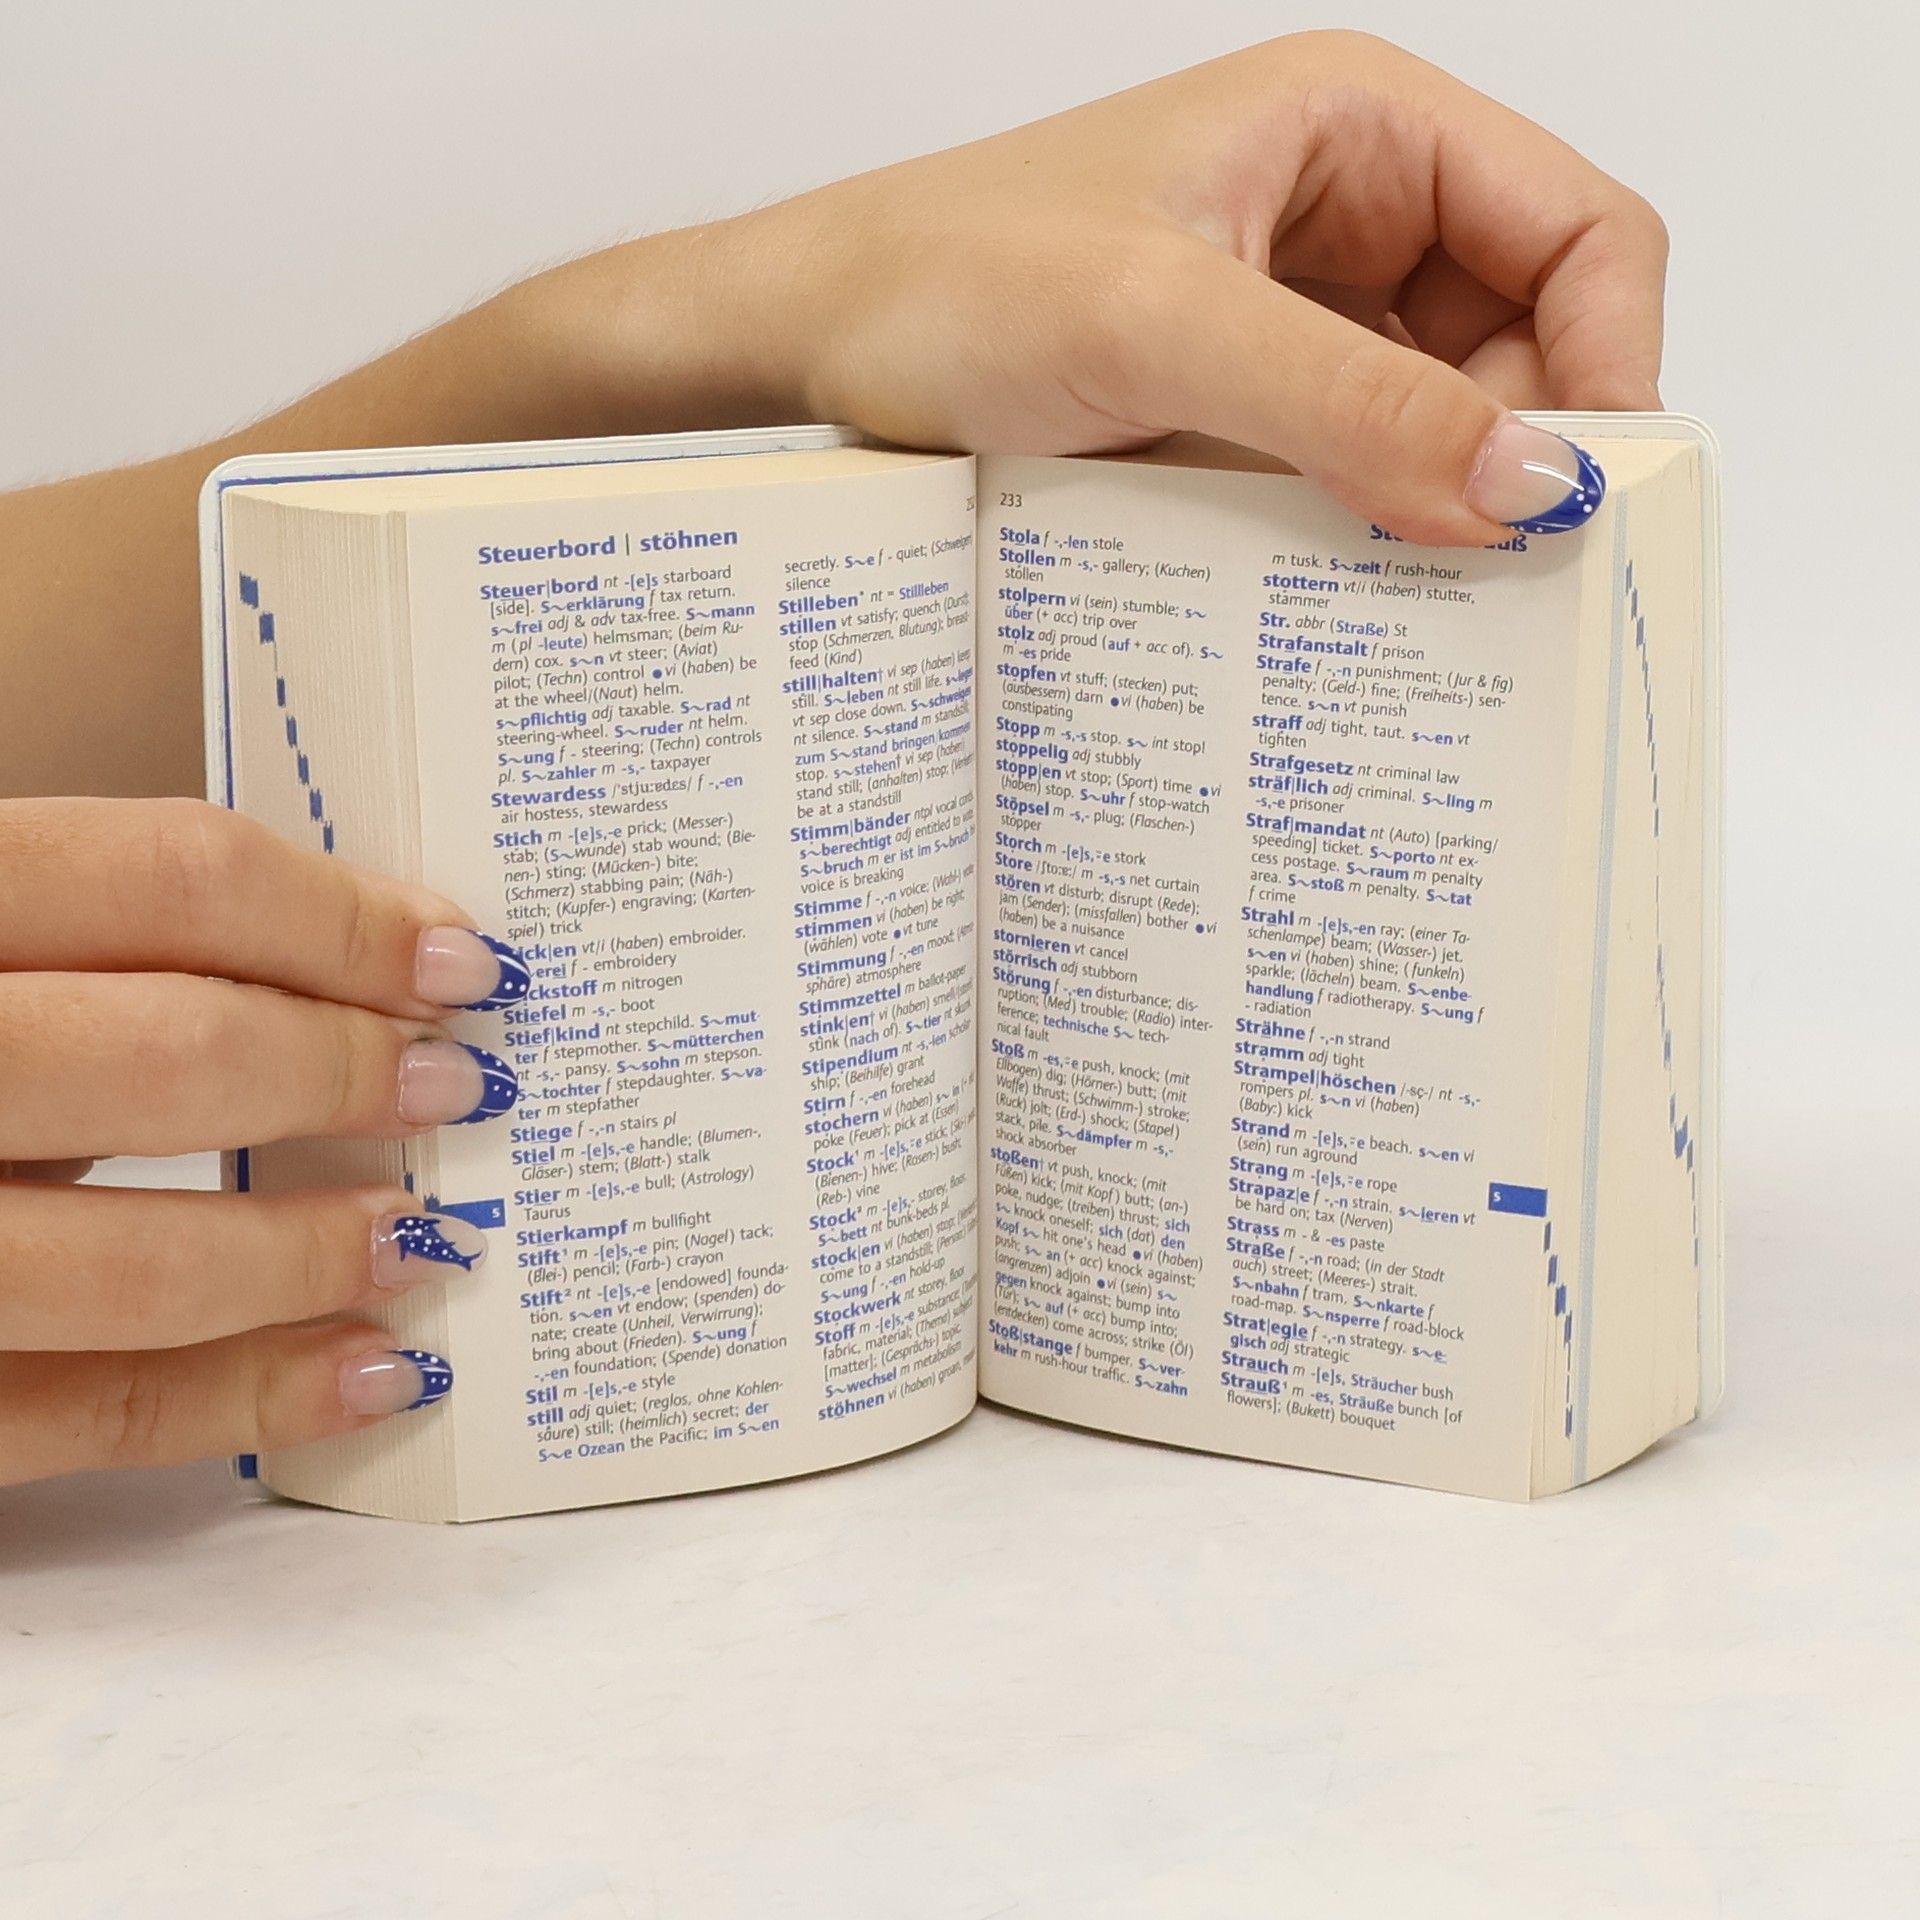 Steuerbord | stöhnen
Steuer|bord nt -[e]s starboard
[side]. S~erklärung f tax return.
s~frei adj & adv tax-free. S~mann
m (pl -leute) helmsman; (beim Ru-
dern) cox. s~n vt steer; (Aviat)
pilot; (Techn) control ●vi (haben) be
at the wheel/(Naut) helm.
s~pflichtig adj taxable. S~rad nt
steering-wheel. S~ruder nt helm.
S~ung f - steering; (Techn) controls
pl. S~zahler m -s,- taxpayer
Stewardess /'stju:ɐdɛs/ f -,-en
air hostess, stewardess
Stich m -[e]s,-e prick; (Messer-)
stab; (S~wunde) stab wound; (Bie-
nen-) sting; (Mücken-) bite;
(Schmerz) stabbing pain; (Näh-)
stitch; (Kupfer-) engraving; (Karten-
spiel) trick
vt/i (haben) embroider.
f - embroidery
m nitrogen
Stiefel m -s,- boot
Stief|kind nt stepchild. S~mut-
ter f stepmother. S~mütterchen
nt -s,- pansy. S~sohn m stepson.
S~tochter f stepdaughter. S~va-
ter m stepfather
Stiege f -,-n stairs pl
Stiel m -[e]s,-e handle; (Blumen-,
Gläser-) stem; (Blatt-) stalk
Stier m -[e]s,-e bull; (Astrology)
Taurus
Stierkampf m bullfight
Stift¹ m -[e]s,-e pin; (Nagel) tack;
(Blei-) pencil; (Farb-) crayon
Stift² nt -[e]s,-e [endowed] founda-
tion. s~en vt endow; (spenden) do-
nate; create (Unheil, Verwirrung);
bring about (Frieden). S~ung f
-,-en foundation; (Spende) donation
Stil m -[e]s,-e style
still adj quiet; (reglos, ohne Kohlen-
säure) still; (heimlich) secret; der
S~e Ozean the Pacific; im S~en
secretly. S~e f - quiet; (Schweigen)
silence
Stilleben* nt = Stillleben
stillen vt satisfy; quench (Durst);
stop (Schmerzen, Blutung); breast-
feed (Kind)
still|halten† vi sep (haben) keep
still. S~leben nt still life. s~legen
vt sep close down. S~schweigen
nt silence. S~stand m standstill;
zum S~stand bringen/kommen
stop. s~stehen† vi sep (haben)
stand still; (anhalten) stop;
be at a standstill
Stimm|bänder ntpl vocal cords.
s~berechtigt adj entitled to vote.
S~bruch m er ist im S~bruch
voice is breaking
Stimme f -,-n voice; (Wahl-) vote
stimmen vi (haben) be right;
(wählen) vote ●vt tune
Stimmung f -,-en mood;
sphäre) atmosphere
Stimmzettel m ballot-paper
stink|en† vi (haben) smell/
stink (nach of). S~tier nt skunk
Stipendium nt -s,-ien scholar-
ship; (Beihilfe) grant
Stirn f -,-en forehead
stochern vi (haben) s~ in
poke (Feuer); pick at (Essen)
Stock¹ m -[e]s,⸚e stick;
(Bienen-) hive; (Rosen-) bush;
(Reb-) vine
Stock² m -[e]s,- storey, floor.
S~bett nt bunk-beds pl.
stock|en vi (haben) stop;
come to a standstill;
S~ung f -,-en hold-up
Stockwerk nt storey, floor
Stoff m -[e]s,-e substance;
fabric, material; (Thema) subject
[matter]; (Gesprächs-) topic.
S~wechsel m metabolism
stöhnen vi (haben) groan,
s
233
Stola f -,-len stole
Stollen m -s,- gallery; (Kuchen)
stollen
stolpern vi (sein) stumble; s~
über (+ acc) trip over
stolz adj proud (auf + acc of). S~
m -es pride
stopfen vt stuff; (stecken) put;
(ausbessern) darn ●vi (haben) be
constipating
Stopp m -s,-s stop. s~ int stop!
stoppelig adj stubbly
stopp|en vt stop; (Sport) time ●vi
(haben) stop. S~uhr f stop-watch
Stöpsel m -s,- plug; (Flaschen-)
stopper
Storch m -[e]s,⸚e stork
Store /ʃto:ɐ/ m -s,-s net curtain
stören vt disturb; disrupt (Rede);
jam (Sender); (missfallen) bother ●vi
(haben) be a nuisance
stornieren vt cancel
störrisch adj stubborn
Störung f -,-en disturbance; dis-
ruption; (Med) trouble; (Radio) inter-
ference; technische S~ tech-
nical fault
Stoß m -es,⸚e push, knock; (mit
Ellbogen) dig; (Hörner-) butt; (mit
Waffe) thrust; (Schwimm-) stroke;
(Ruck) jolt; (Erd-) shock; (Stapel)
stack, pile. S~dämpfer m -s,-
shock absorber
stoßen† vt push, knock; (mit
Füßen) kick; (mit Kopf) butt; (an-)
poke, nudge; (treiben) thrust; sich
s~ knock oneself; sich (dat) den
Kopf s~ hit one's head ●vi (haben)
push; s~ an (+ acc) knock against;
(angrenzen) adjoin ●vi (sein) s~
gegen knock against; bump into
(Tür); s~ auf (+ acc) bump into;
(entdecken) come across; strike (Öl)
Stoß|stange f bumper. S~ver-
kehr m rush-hour traffic. S~zahn
m tusk. S~zeit f rush-hour
stottern vt/i (haben) stutter,
stammer
Str. abbr (Straße) St
Strafanstalt f prison
Strafe f -,-n punishment; (Jur & fig)
penalty; (Geld-) fine; (Freiheits-) sen-
tence. s~n vt punish
straff adj tight, taut. s~en vt
tighten
Strafgesetz nt criminal law
sträf|lich adj criminal. S~ling m
-s,-e prisoner
Straf|mandat nt (Auto) [parking/
speeding] ticket. S~porto nt ex-
cess postage. S~raum m penalty
area. S~stoß m penalty. S~tat
f crime
Strahl m -[e]s,-en ray; (einer Ta-
schenlampe) beam; (Wasser-) jet.
s~en vi (haben) shine; (funkeln)
sparkle; (lächeln) beam. S~enbe-
handlung f radiotherapy. S~ung f
- radiation
Strähne f -,-n strand
stramm adj tight
Strampel|höschen /-sç-/ nt -s,-
rompers pl. s~n vi (haben)
(Baby:) kick
Strand m -[e]s,⸚e beach. s~en vi
(sein) run aground
Strang m -[e]s,⸚e rope
Strapaz|e f -,-n strain. s~ieren vt
be hard on; tax (Nerven)
Strass m - & -es paste
Straße f -,-n road; (in der Stadt
auch) street; (Meeres-) strait.
S~nbahn f tram. S~nkarte f
road-map. S~nsperre f road-block
Strat|egie f -,-n strategy. s~e-
gisch adj strategic
Strauch m -[e]s, Sträucher bush
Strauß¹ m -es, Sträuße bunch [of
flowers]; (Bukett) bouquet
s